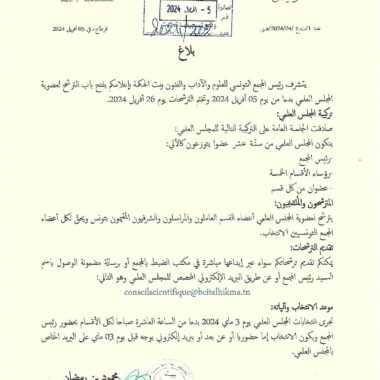 5 - أفريل 2024
قرطاج، في 05 أفريل 2024
بلاغ
يتشرف رئيس المجمع التونسي للعلوم والآداب والفنون بيت الحكمة بإعلامكم بفتح باب الترشح لعضوية
المجلس العلمي بدءا من يوم 05 أفريل 2024 وتختتم الترشحات يوم 26 أفريل 2024.
تركيبة المجلس العلمي:
صادقت الجلسة العامة على التركيبة التالية للمجلس العلمي:
يتكون المجلس العلمي من ستة عشر عضوا يتوزعون كالآتي:
-رئيس المجمع
-رؤساء الأقسام الخمسة
- عضوان من كل قسم
المترشحون والمنتخبون:
يترشح لعضوية المجلس العلمي أعضاء القسم العاملون والمراسلون والشرفيون المقيمون بتونس ويحق لكل أعضاء
المجمع التونسيين الانتخاب.
تقديم الترشحات:
يمكنكم تقديم ترشحاتكم سواء عبر إيداعها مباشرة في مكتب الضبط بالمجمع أو برسالة مضمونة الوصول باسم
السيد رئيس المجمع أو عن طريق البريد الإلكتروني المخصص للمجلس العلمي وهو التالي:
conseilscientifique@beitalhikma.tn
موعد الانتخاب وآلياته:
تجرى انتخابات المجلس العلمي يوم 3 ماي 2024 بدءا من الساعة العاشرة صباحا لكل الأقسام بحضور رئيس
المجمع ويكون الانتخاب إما حضوريا أو عن بعد أو ببريد إلكتروني يوجه قبل يوم 03 ماي على البريد الخاص
بالمجلس العلمي.
محمود بن رمضان